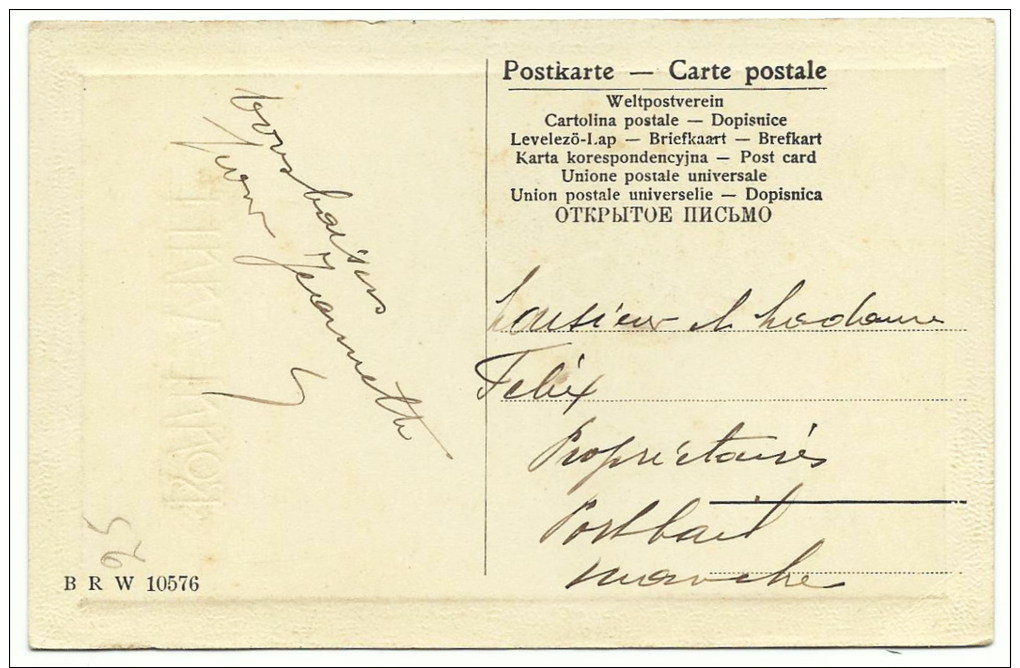 Postkarte — Carte postale
Weltpostverein
Cartolina postale — Dopisnice
Levelezö-Lap — Briefkaart — Brefkart
Karta korespondencyjna — Post card
Unione postale universale
Union postale universelle — Dopisnica
ОТКРЫТОЕ ПИСЬМО
bons baisers
Jeannette
Monsieur et Madame
Felix
Propriétaires
B R W 10576